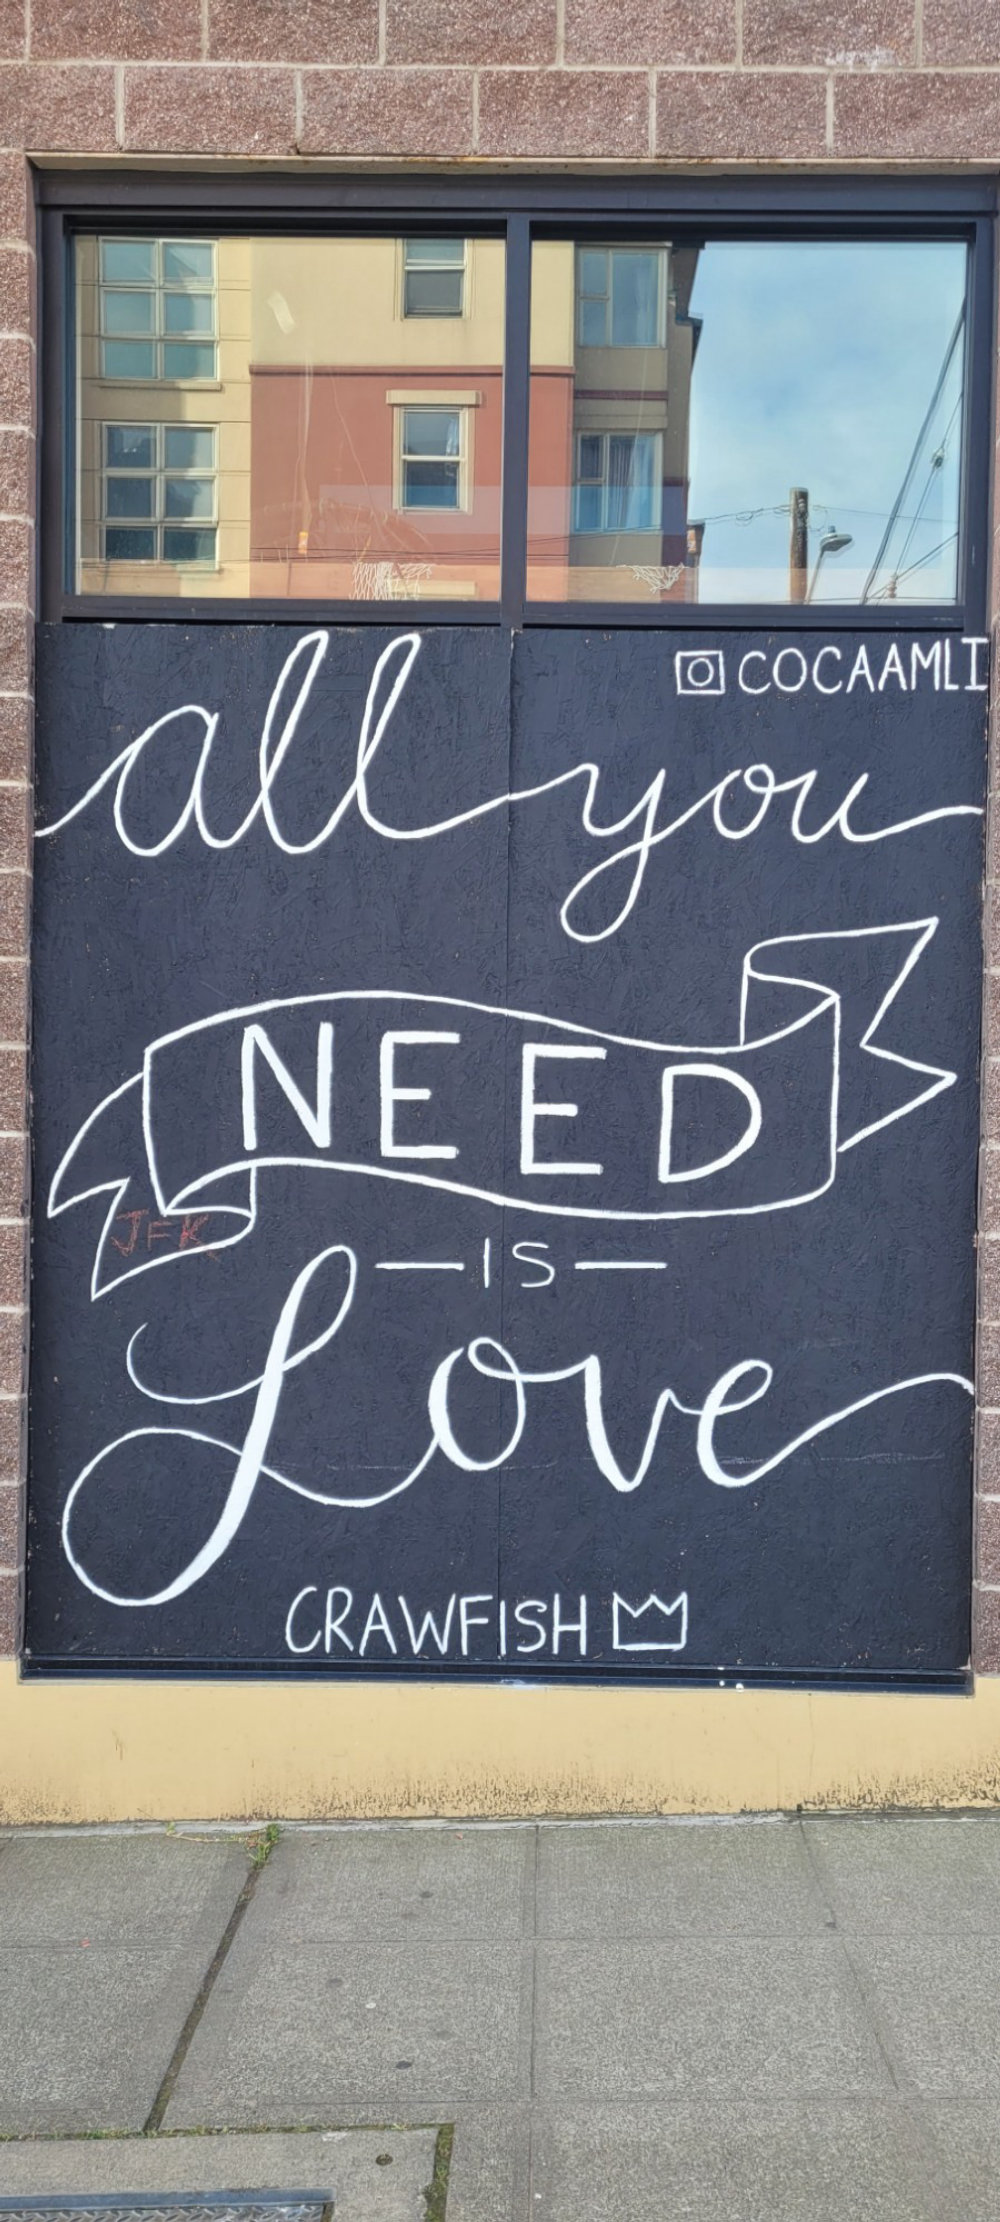 COCAAMLI
all you
NEED
JFK
IS
Love
CRAWFISH